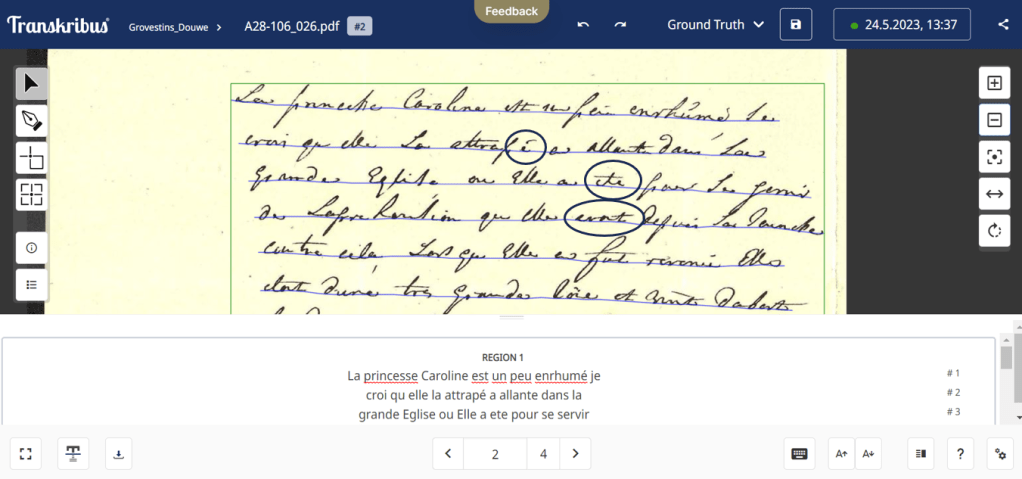 Feedback
Transkribus
Grovestins_Douwe > A28-106_026.pdf #2
Ground Truth
24.5.2023, 13:37
La princesse Caroline est un peu enrhumé je
croi que elle La attrapé a allante dans La
grande Eglise ou Elle a ete pour Se
de L'apre que elle avoit depuis La
contre cela Lors que Elle es fut revenue Elle
etoit d'une tres grande et
REGION 1
La princesse Caroline est un peu enrhumé je #1
croi qu elle la attrapé a allante dans la #2
grande Eglise ou Elle a ete pour se servir #3
2 4
A A
?